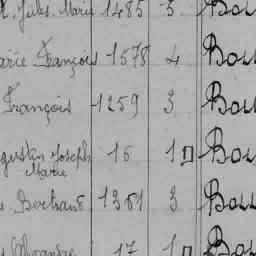 Jules. Marie 1485 3 Bou
arie François 1578 4 Bou
François 1259 3 Bou
gustin Joseph 16 1 Bou
Marie
Bertrand 1361 3 Bou
Alexandre 17 1 Bou